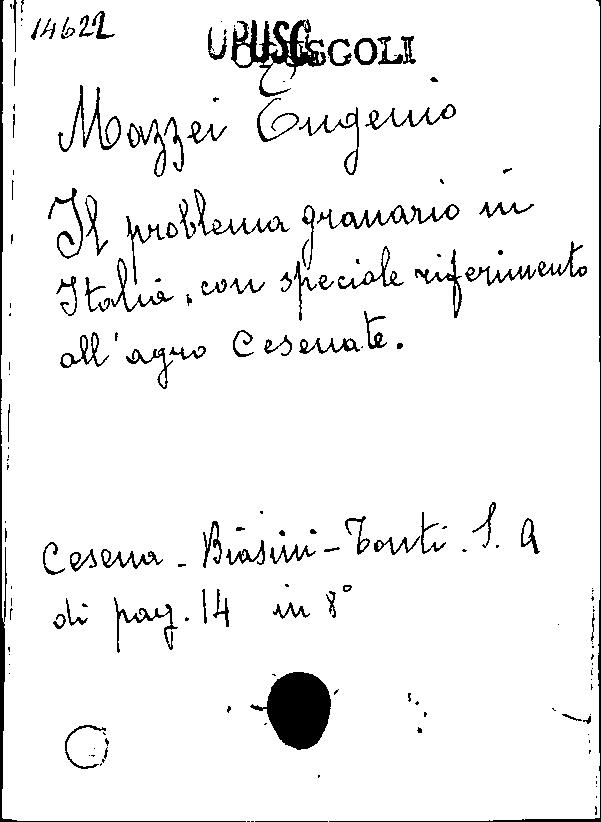 14622
OPUSC.
OPUSCOLI
Mazzei Eugenio
Il problema granario in
Italia, con speciale riferimento
all'agro Cesenate.
Cesena - Biasini-Tonti. S. A
di pag. 14 in 8°